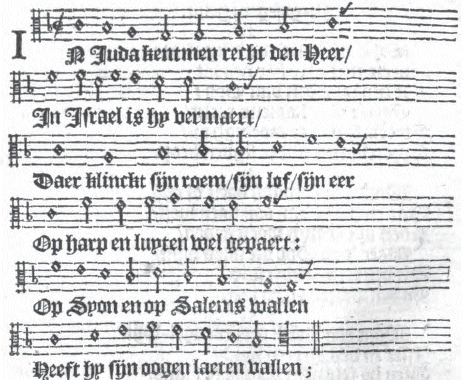 IN Juda kentmen recht den Heer/
In Israel is hy vermaert/
Daer klinckt sijn roem/sijn lof/sijn eer
Op harp en luyten wel gepaert:
Op Syon en op Salems wallen
Heeft hy sijn oogen laeten vallen;